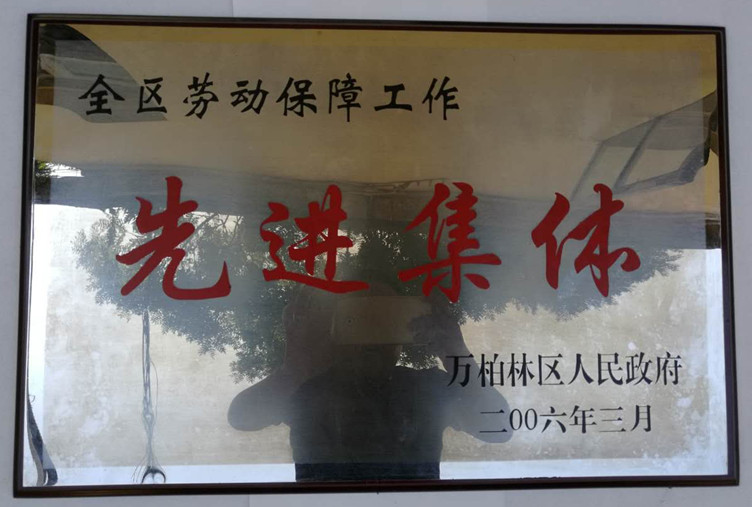 全区劳动保障工作
先进集体
万柏林区人民政府
二00六年三月